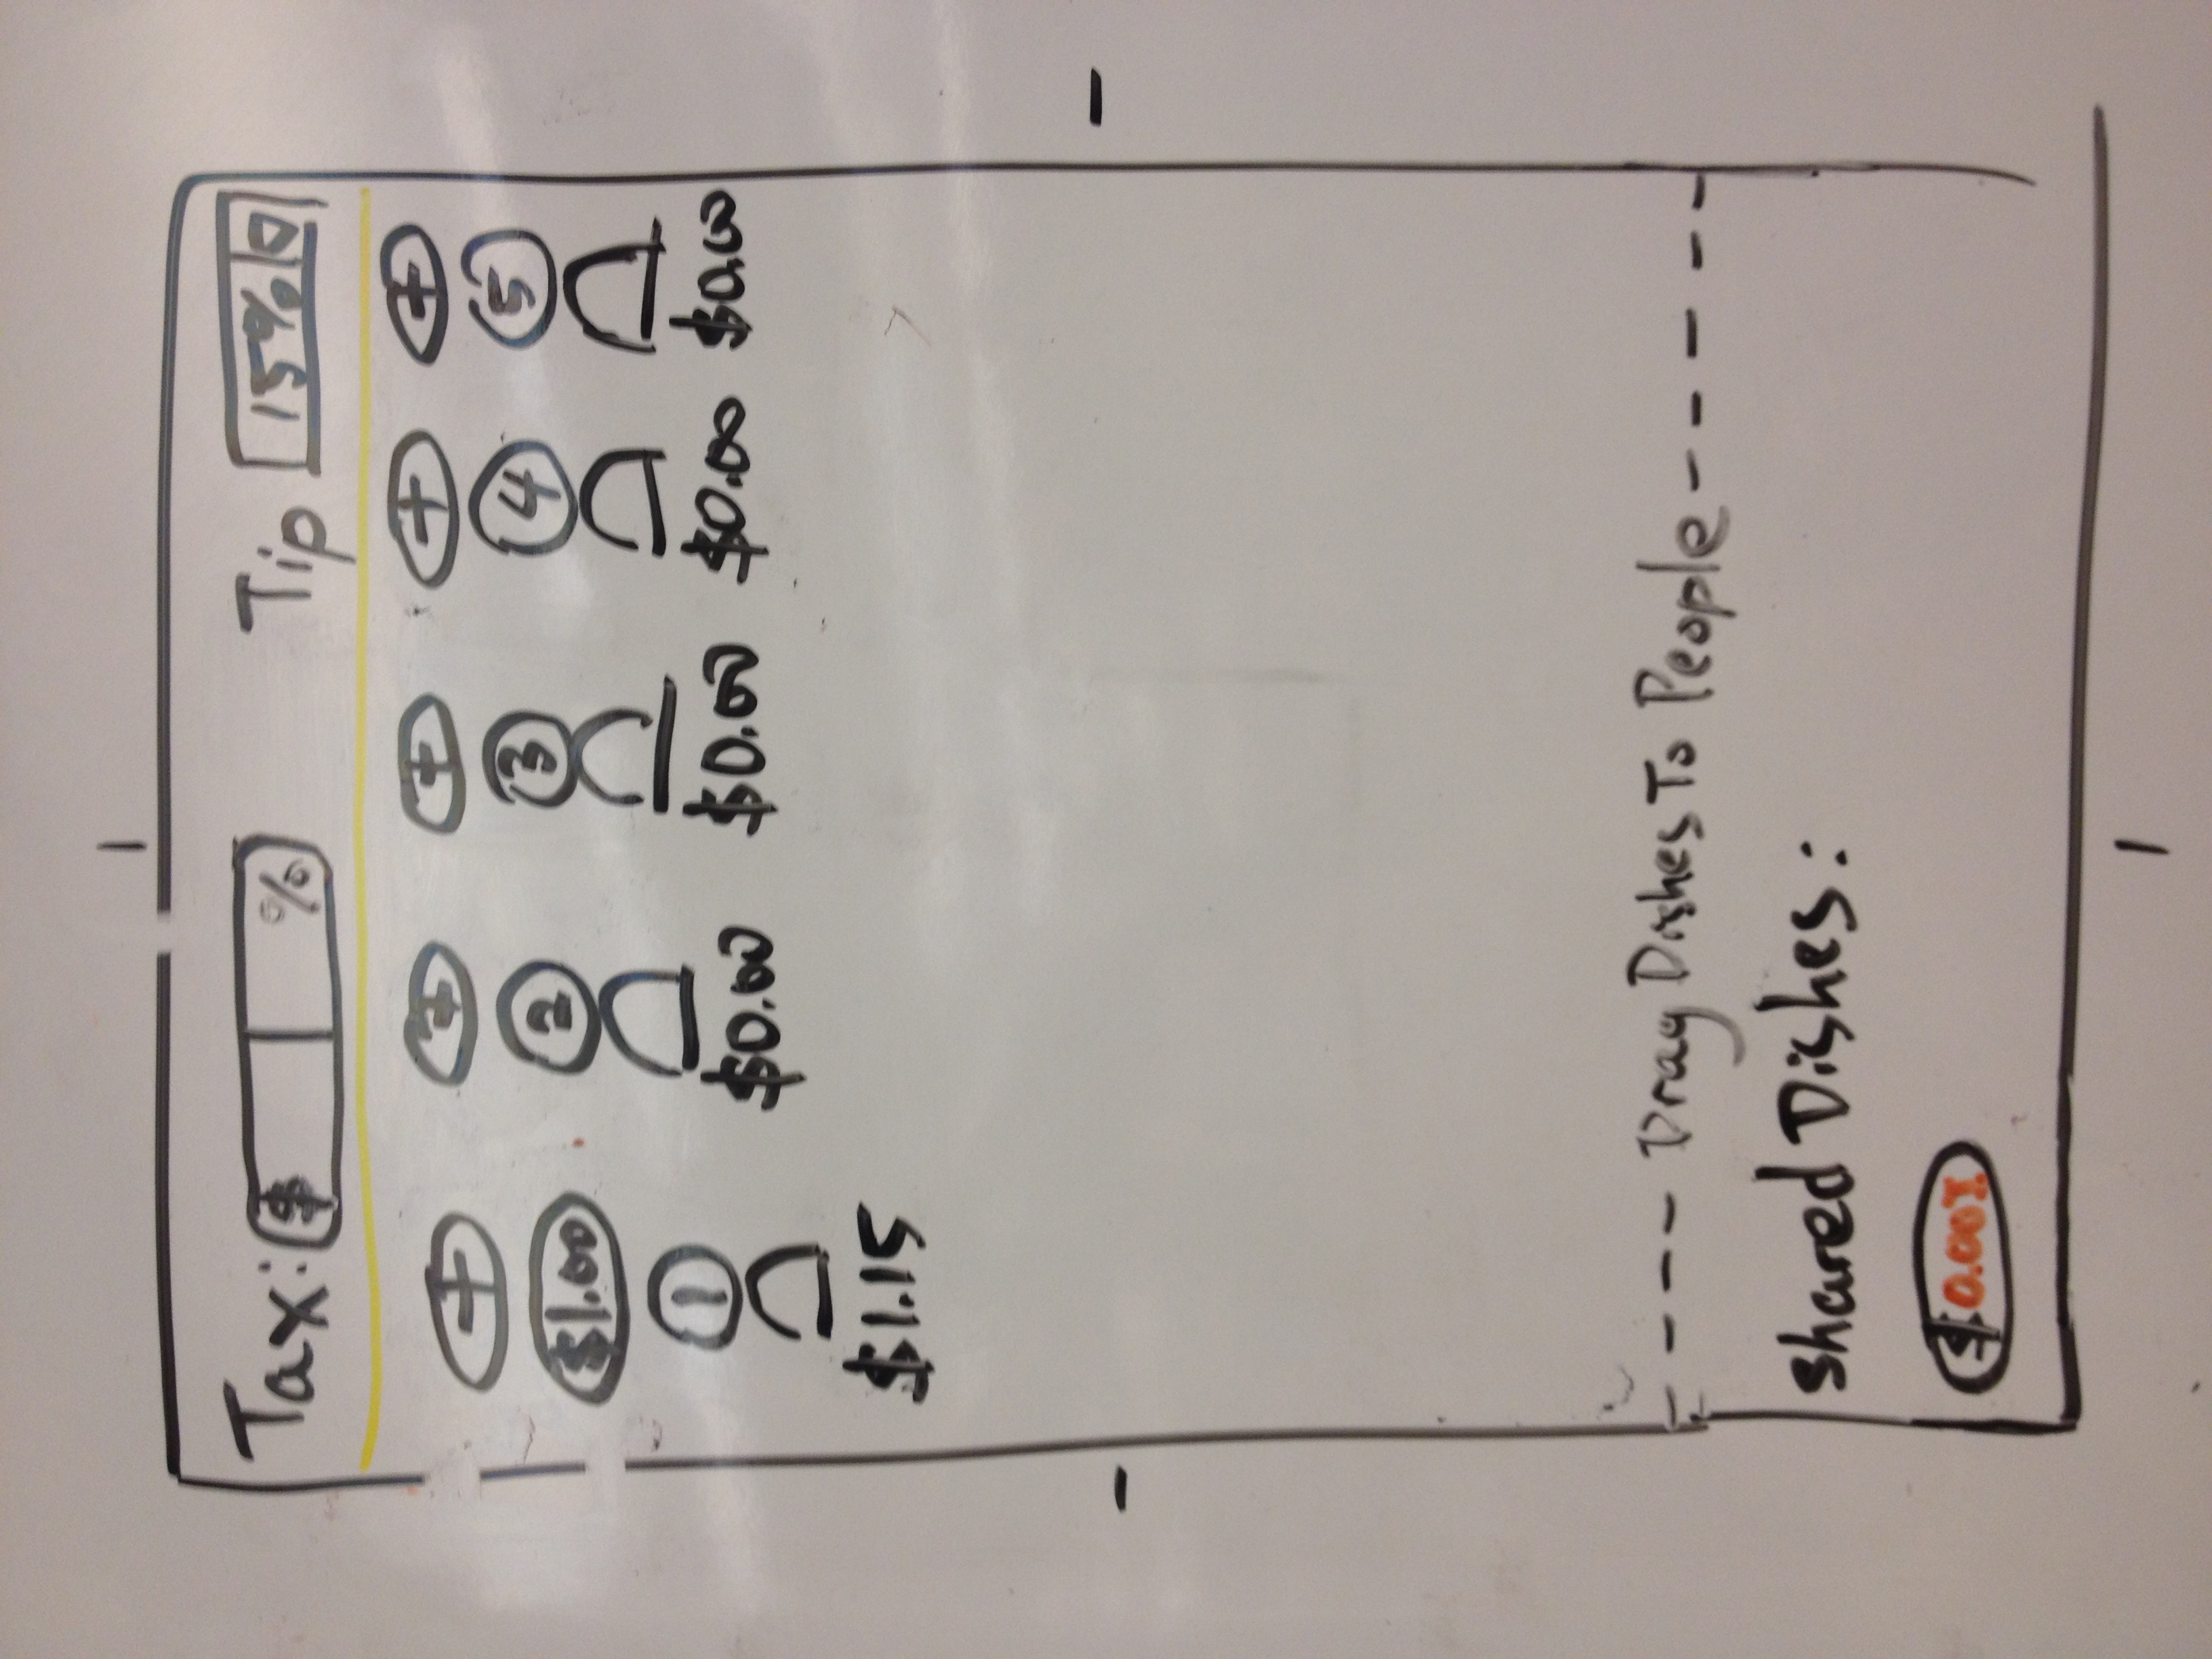 Tax: $ % Tip 15%
+ + + + +
$1.00 2 3 4 5
1 $0.00 $0.00 $0.00 $0.00
$1.15
Drag Dishes To People
Shared Dishes:
$0.00